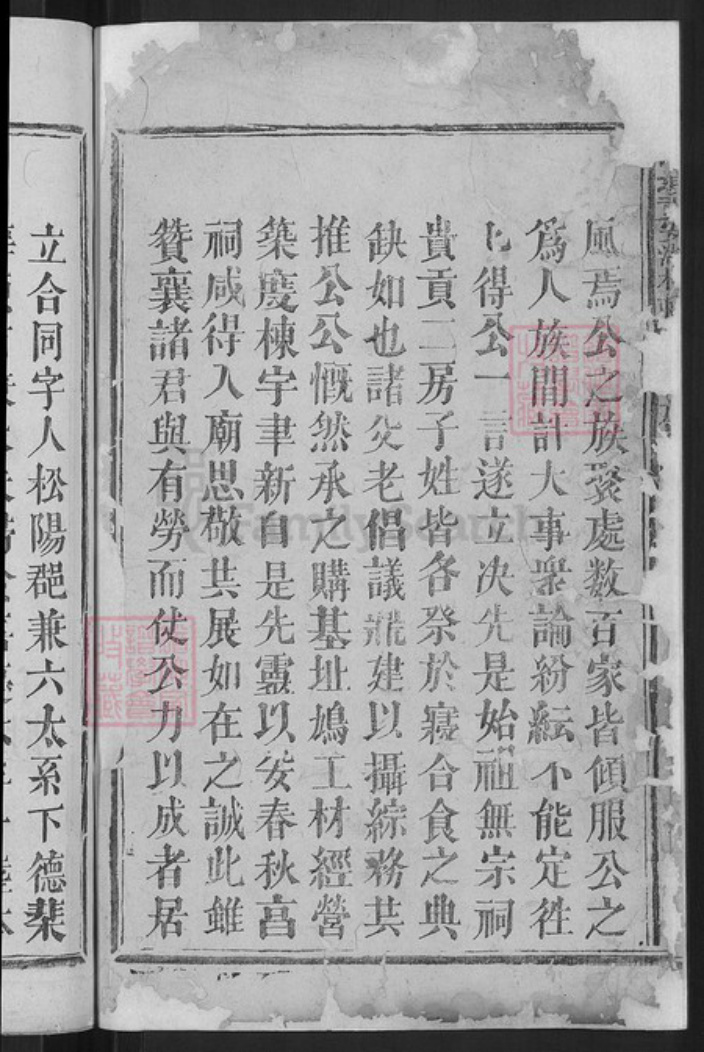 風焉公之族聚處数百家皆傾服公之
爲人族間計大事衆論紛紜不能定徃
得公一言遂立决先是始祖無宗祠
貴貢二房子姓皆各祭於寢合食之典
缺如也諸父老倡議建以攝綜務共
推公公慨然承之購基址鳩工材經營
築度棟宇聿新自是先靈以安春秋亯
祠咸得入廟思敬共展如在之誠此雖
贊襄諸君與有勞而仗公力以成者居
立合同字人松陽邑兼六太系下德棻
FamilySearch